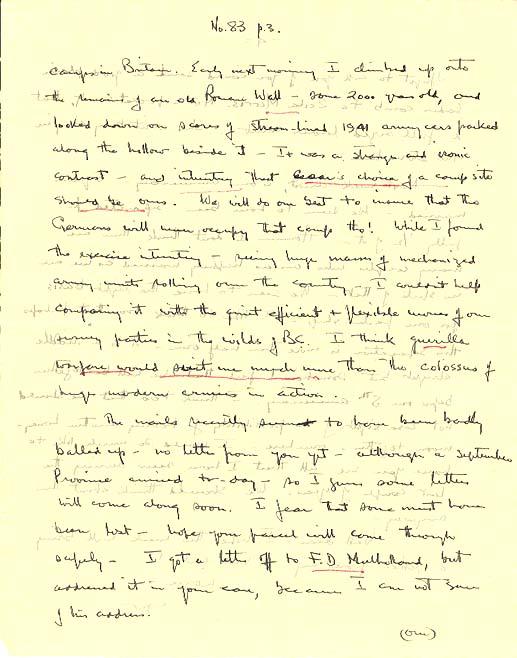 No. 83 p. 3.
camps in Britain. Early next morning I climbed up onto
the remains of an old Roman Wall – some 2000 years old, and
looked down on scores of stream-lined 1941 army cars parked
along the hollow beside it – It was a strange and ironic
contrast – and interesting that Caesar's choice of a camp site
should be ours. We will do our best to insure that the
Germans will never occupy that camp tho! While I found
the exercise interesting – seeing huge masses of mechanized
army units rolling over the country – I couldn't help
comparing it with the quiet efficient + flexible moves of our
survey parties in the wilds of BC. I think guerilla
warfare would suit me much more than the colossus of
huge modern armies in action.
The mails recently seem to have been badly
balled up – no letter from you yet – although a September
Province arrived to-day – so I guess some letters
will come along soon. I fear that some must have
been lost – hope your parcel will come through
safely – I got a letter off to F.D. Mulholland, but
addressed it in your care, because I am not sure
of his address.
(over)